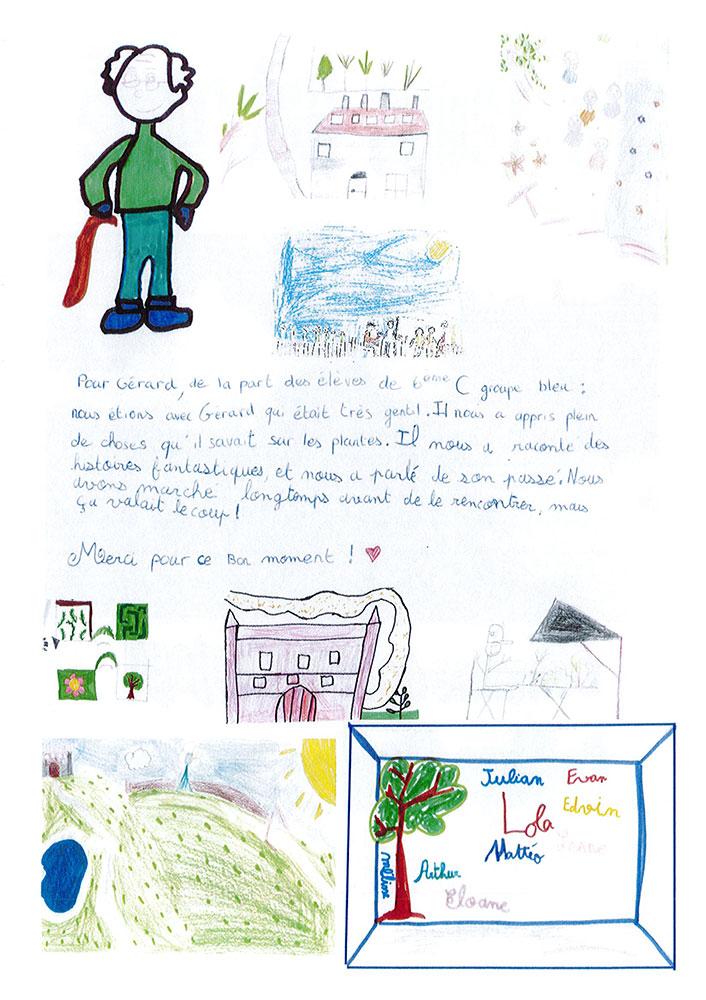 Pour Gérard, de la part des élèves de 6eme C groupe bleu :
nous étions avec Gérard qui était très gentil. Il nous a appris plein
de choses qu'il savait sur les plantes. Il nous a raconté des
histoires fantastiques, et nous a parlé de son passé. Nous
avons marché longtemps avant de le rencontrer, mais
ça valait le coup !
Merci pour ce Bon moment ! ♥
Julian Evan
Lola Edvin
Mattéo
Arthur
Eloane